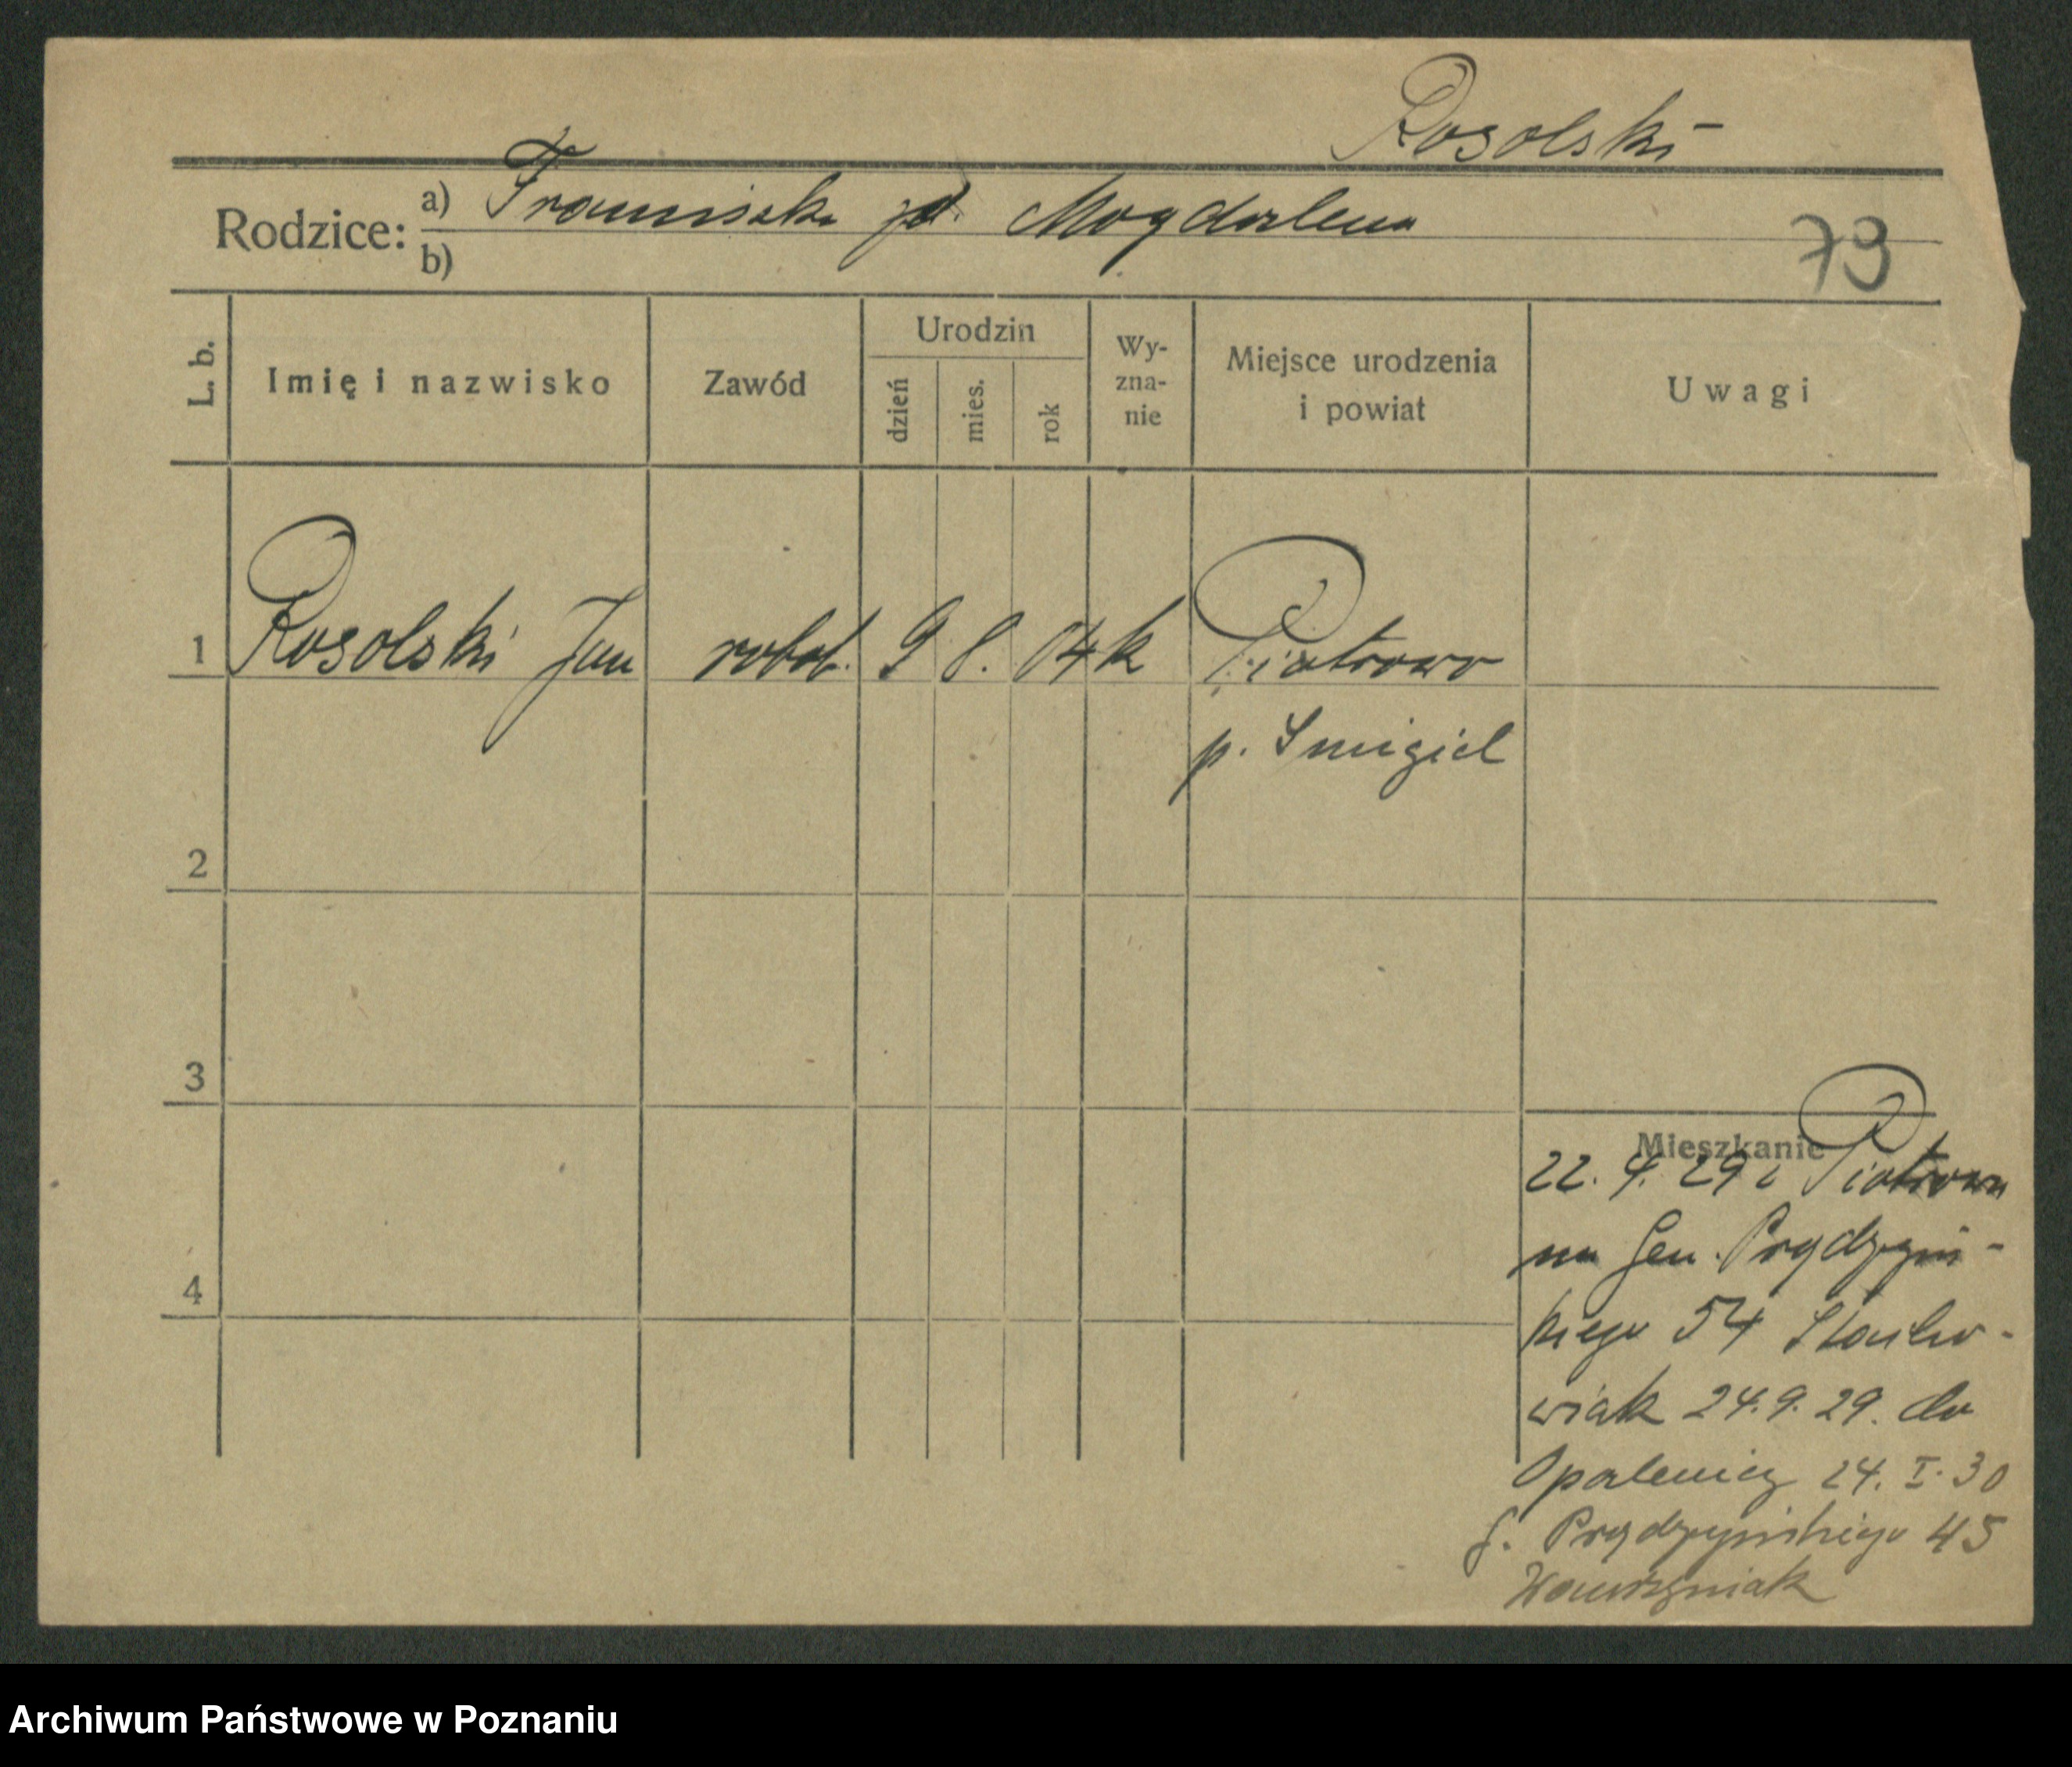 Rosolski
Rodzice: a) Franciszek i Magdalena
b)
79
L. b.
Imię i nazwisko
Zawód
Urodzin
dzień
mies.
rok
Wy-
zna-
nie
Miejsce urodzenia
i powiat
Uwagi
1 Rosolski Jan robot. 9 8. 04 k Piotrowo
p. Smigiel
2
3
4
Mieszkanie
22. 4. 29 z Piotrowa
na Gen. Prądzyń-
kiego 54
wiak 24.9.29. do
Opalenicy 24. I. 30
G. Prądzyńskiego 45
Wawrzyniak
Archiwum Państwowe w Poznaniu